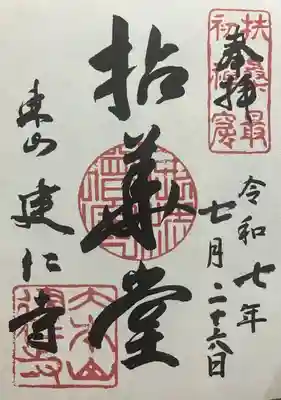 奉拝
扶桑最初禅窟
令和七年
七月二十六日
拈華堂
東山 建仁寺